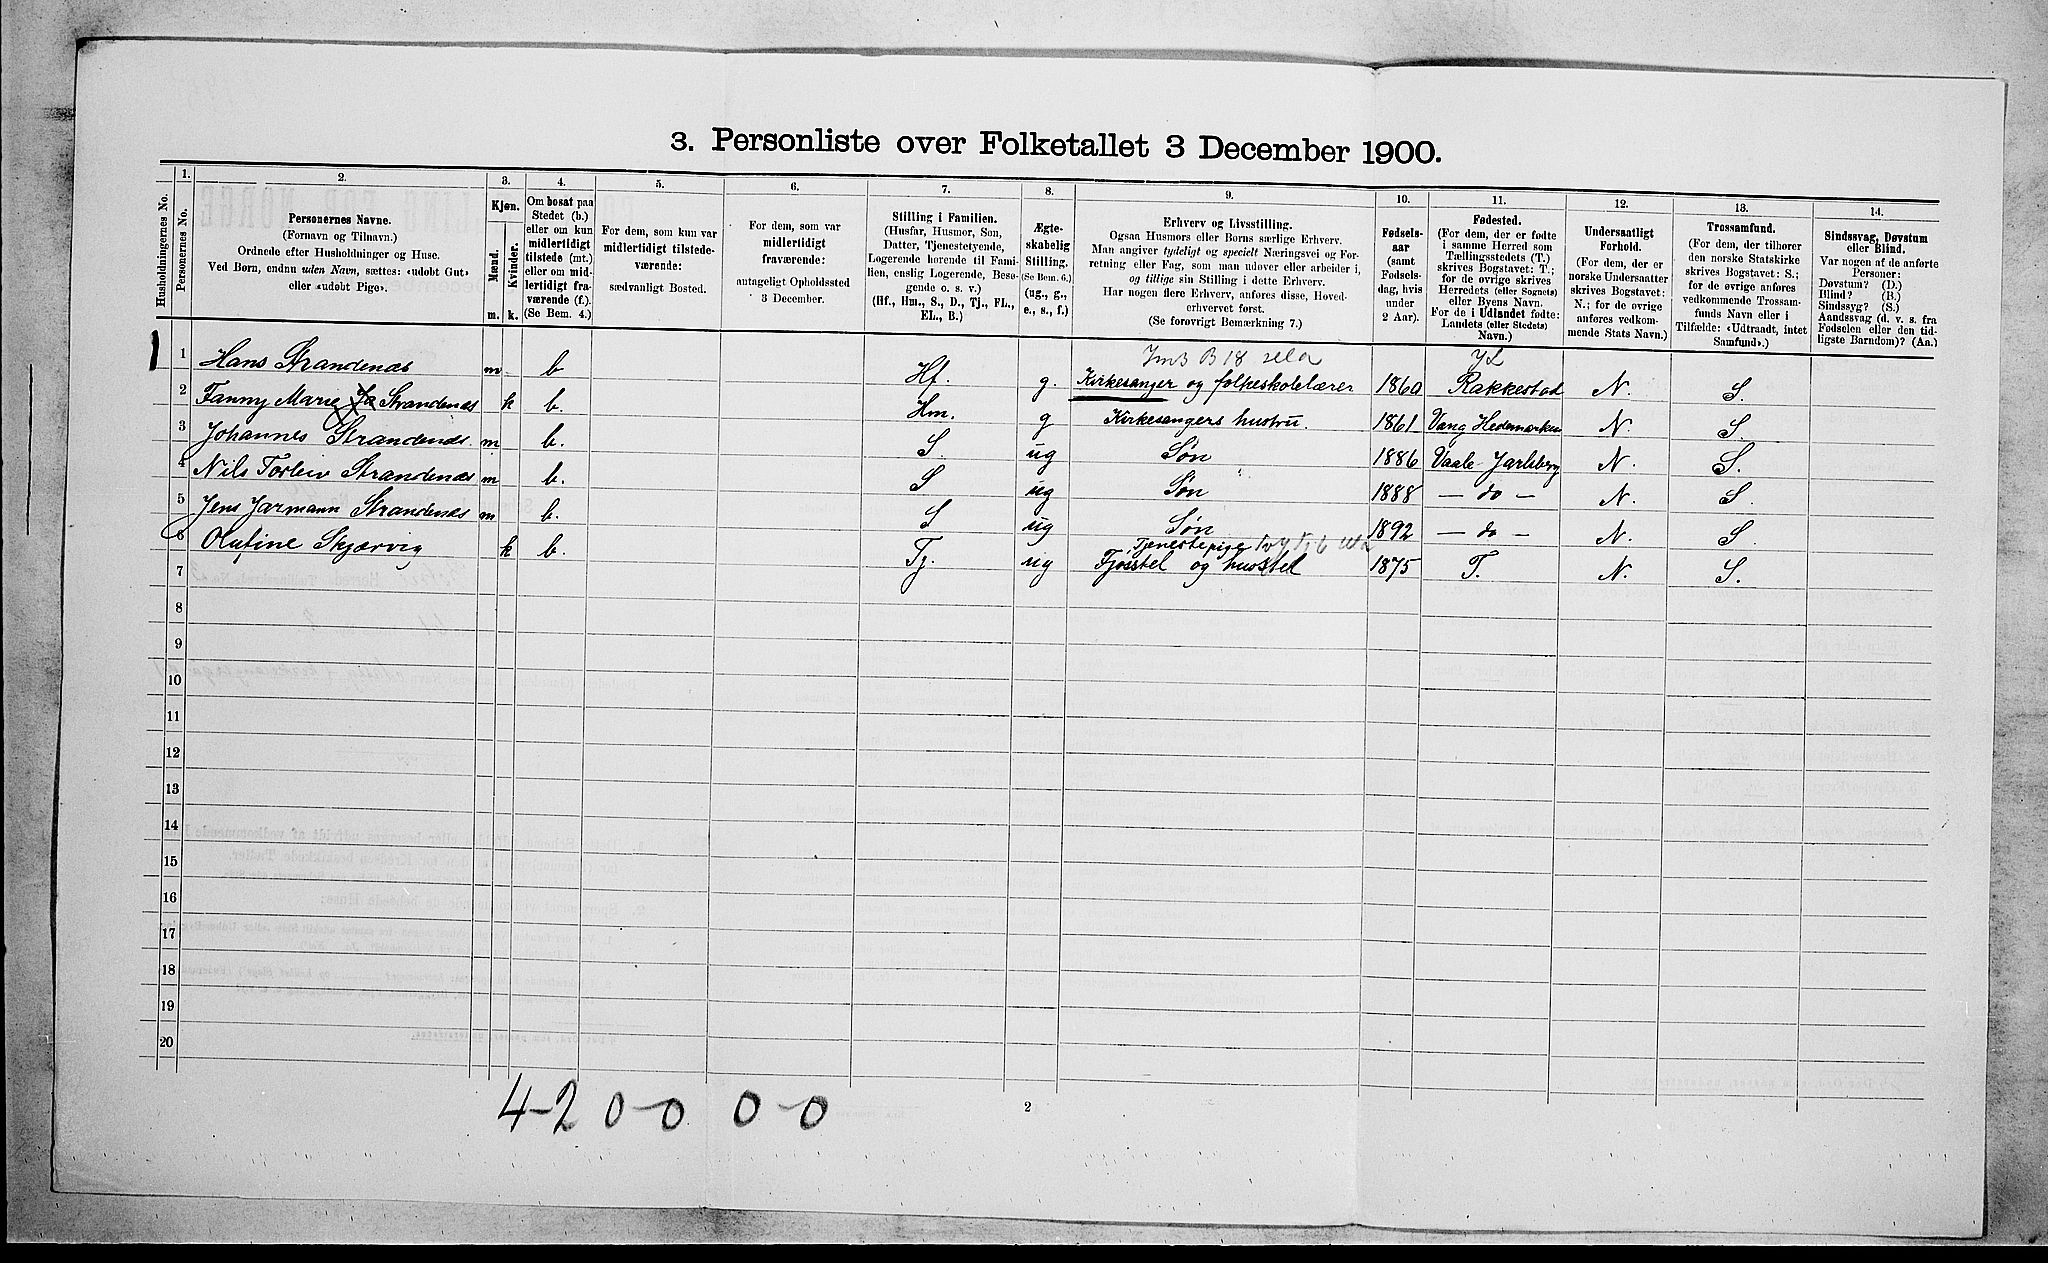 3. Personliste over Folketallet 3 December 1900.
1. 2. 3. 4. 5. 6. 7. 8. 9. 10. 11. 12. 13. 14.
Husholdningernes No.
Personernes No.
Personernes Navne.
(Fornavn og Tilnavn.)
Ordnede efter Husholdninger og Huse.
Ved Børn, endnu uden Navn, sættes: «udøbt Gut»
eller «udøbt Pige».
Kjøn.
Mænd.
Kvinder.
m. k.
Om bosat paa
Stedet (b.)
eller om kun
midlertidigt
tilstede (mt.)
eller om mid-
lertidigt fra-
værende (f.).
(Se Bem. 4.)
For dem, som kun var
midlertidigt tilstede-
værende:
sædvanligt Bosted.
For dem, som var
midlertidigt
fraværende:
antageligt Opholdssted
3 December.
Stilling i Familien.
(Husfar, Husmor, Søn,
Datter, Tjenestetyende,
Logerende hørende til Fami-
lien, enslig Logerende, Besø-
gende o. s. v.)
(Hf., Hm., S., D., Tj., FL.,
EL., B.)
Ægte-
skabelig
Stilling.
(Se Bem. 6.)
(ug., g.,
e., s., f.)
Erhverv og Livsstilling.
Ogsaa Husmors eller Børns særlige Erhverv.
Man angiver tydeligt og specielt Næringsvei og For-
retning eller Fag, som man udøver eller arbeider i,
og tillige sin Stilling i dette Erhverv.
Har nogen flere Erhverv, anføres disse, Hoved-
erhvervet først.
(Se forøvrigt Bemærkning 7.)
Fødsels-
aar
(samt
Fødsels-
dag, hvis
under
2 Aar).
Fødested.
(For dem, der er fødte
i samme Herred som
Tællingsstedets (T.)
skrives Bogstavet: T.;
for de øvrige skrives
Herredets (eller Sognets)
eller Byens Navn.
For de i Udlandet fødte:
Landets (eller Stedets)
Navn.)
Undersaatligt
Forhold.
(For dem, der er
norske Undersaatter
skrives Bogstavet:
N.; for de øvrige
anføres vedkom-
mende Stats Navn.)
Trossamfund.
(For dem, der tilhører
den norske Statskirke
skrives Bogstavet: S.;
for de øvrige anføres
vedkommende Trossam-
funds Navn eller i
Tilfælde: «Udtraadt, intet
Samfund».)
Sindssvag, Døvstum
eller Blind.
Var nogen af de anførte
Personer:
Døvstum? (D.)
Blind? (B.)
Sindssyg? (S.)
Aandssvag (d. v. s. fra
Fødselen eller den tid-
ligste Barndom)? (Aa.)
1 1 Hans Strandenæs m b Hf. g. Kirkesanger og folkeskolelærer 1860 Rakkestad N. S.
2 Fanny Marie Strandenæs k b. Hm. g Kirkesangers hustru. 1861 Vang Hedemarken N. S.
3 Johannes Strandenæs m b. S. ug Søn 1886 Vaale Jarlsberg N. S.
4 Nils Torleiv Strandenæs m b. S ug Søn 1888 — do — N. S.
5 Jens Jarmann Strandenæs m b. S ug Søn 1892 — do — N. S.
6 Olufine Skjærvig k b. Tj. ug Tjenestepige
Fjøsstel og husstel 1875 T. N. S.
7
8
9
10
11
12
13
14
15
16
17
18
19
20
4-2 0-0 0-0
2